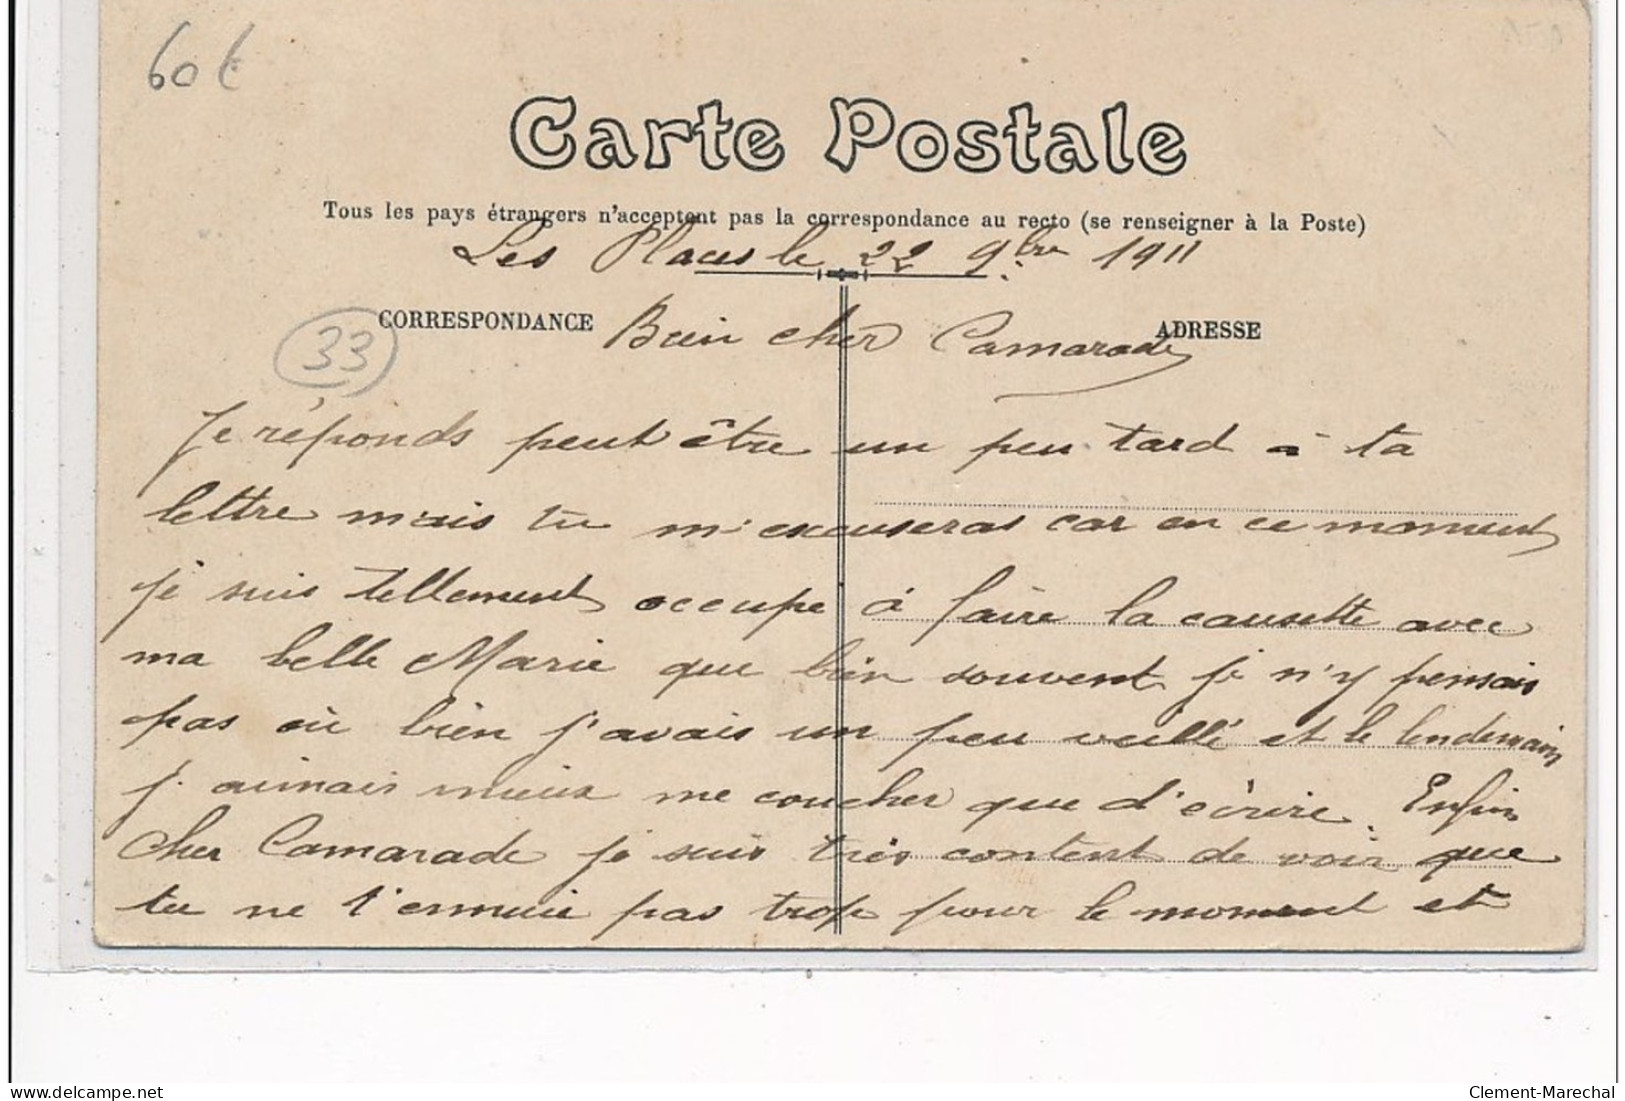 60 €
Carte Postale
Tous les pays étrangers n'acceptent pas la correspondance au recto (se renseigner à la Poste)
Les Places le 22 9bre 1911
CORRESPONDANCE
ADRESSE
33
Bien cher Camarade
Je réponds peut être un peu tard à ta
lettre mais tu m'excuseras car en ce moment
je suis tellement occupé à faire la causette avec
ma belle Marie que bien souvent je n'y pensais
pas où bien j'avais un peu veillé et le lendemain
j'aimais mieux me coucher que d'écrire. Enfin
cher Camarade je suis très content de voir que
tu ne t'ennuie pas trop pour le moment et
delcampe.net
Clement-Marechal